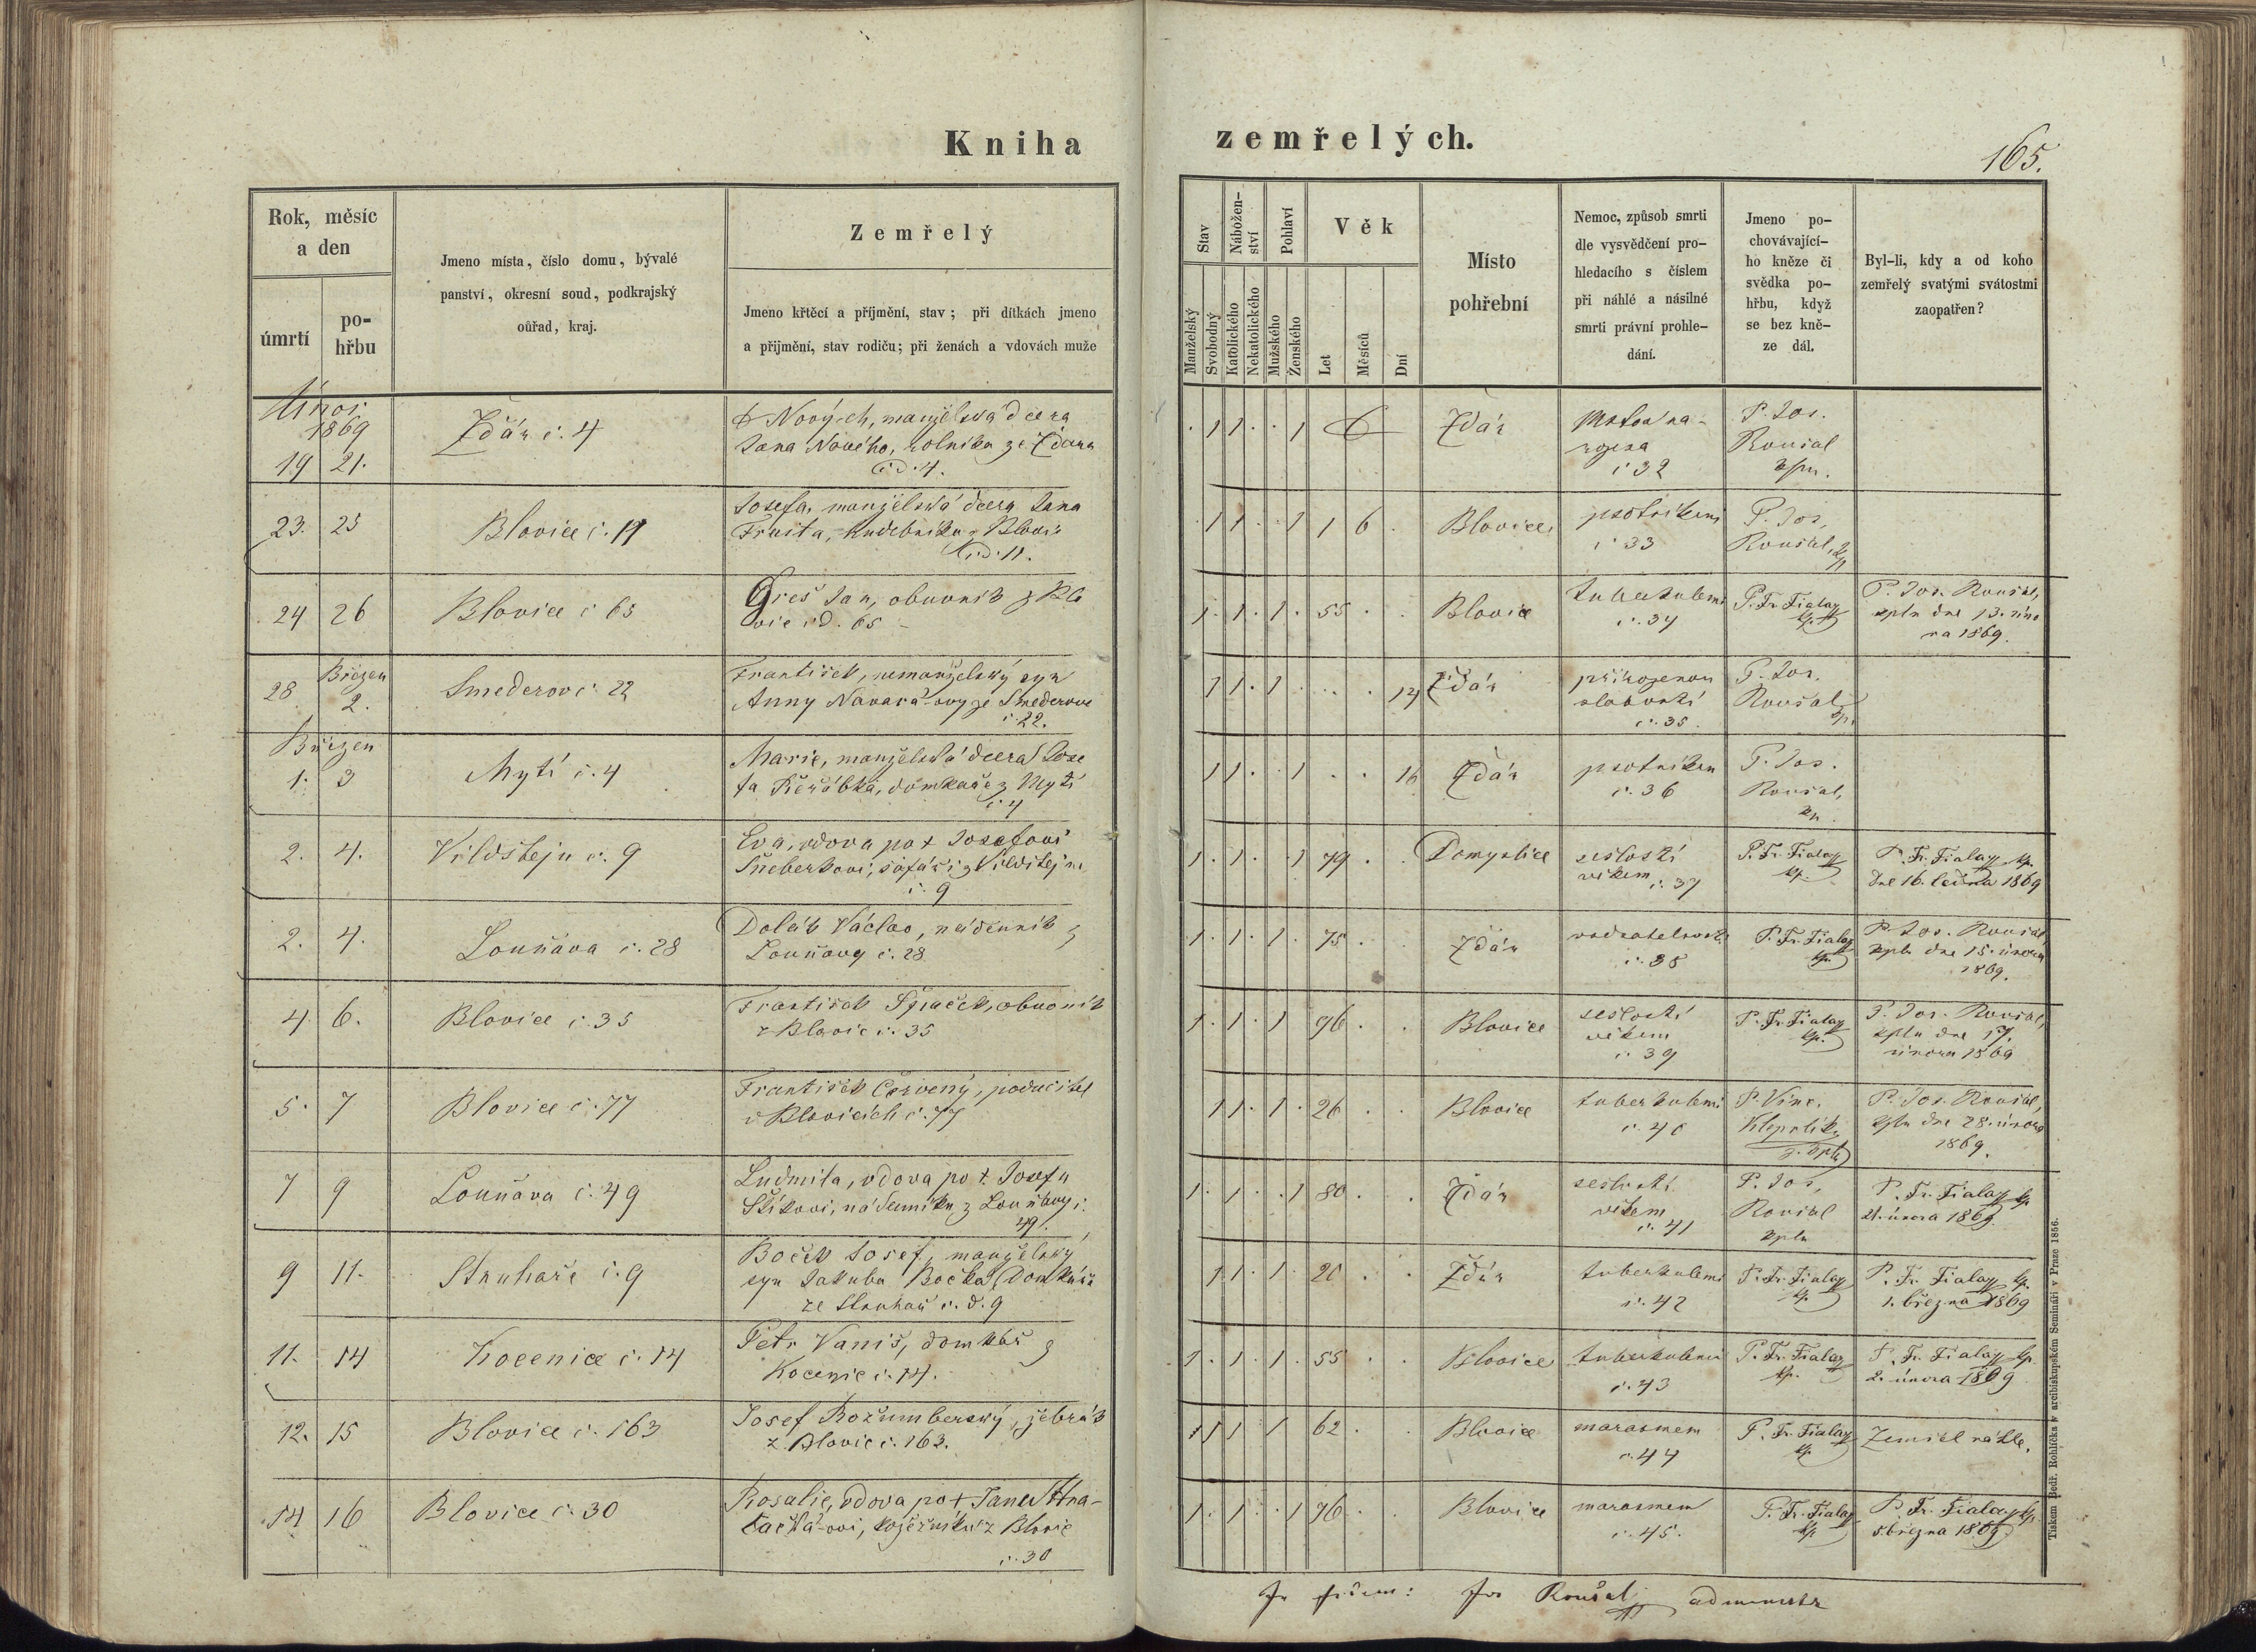 Kniha
zemřelých.
165.
Rok, měsíc
a den
úmrtí
po-
hřbu
Jmeno místa, číslo domu, bývalé
panství, okresní soud, podkrajský
oůřad, kraj.
Zemřelý
Jmeno křtěcí a příjmění, stav; při dítkách jmeno
a přijmění, stav rodiču; při ženách a vdovách muže
Stav
Manželský
Svobodný
Nábožen-
ství
Katolického
Nekatolického
Pohlaví
Mužského
Ženského
Věk
Let
Měsíců
Dní
Místo
pohřební
Nemoc, způsob smrti
dle vysvědčení pro-
hledacího s číslem
při náhlé a násilné
smrti právní prohle-
dání.
Jmeno po-
chovávající-
ho kněze či
svědka po-
hřbu, když
se bez kně-
ze dál.
Byl-li, kdy a od koho
zemřelý svatými svátostmi
zaopatřen?
Únor
1869
19 21. Ždár č. 4
Nových, manželská dcera
Jana Nového, rolníka ze Ždára
č.d. 4.
1 1 1 Ždár
Mrtva na-
rozena
č 32
P. Jos.
Roušal
23. 25 Blovice č. 11
Josefa, manželská dcera Jana
Frusta, hudebníka z Blovic
č.d. 11.
1 1 1 1 6 Blovice
psotníkem
č 33
P. Jos.
Roušal,
24 26 Blovice č 65
Greš Jan, obuvník z Blo
vic č.d. 65
1 1 1 55 Blovice
tuberkulemi
č. 34
P. Fr. Fiala
kp.
P. Jos. Roušal,
kpln dne 13. úno
ra 1869.
28 Březen
2. Smederov č. 22
František, nemanželský syn
Anny Navará-ovy ze Smederova
č. 22.
1 1 1 14 Ždár
přirozenou
slabostí
č. 35.
P. Jos.
Roušal
kp.
Březen
1. 3 Mytí č. 4
Marie, manželská dcera Jose
fa Řeřábka, domkaře z Mytí
č 4
1 1 1 16 Ždár
psotníkem
č. 36
P. Jos.
Roušal,
2. 4. Vildštejn č. 9
Eva, vdova po † Josefovi
Šneberkovi, šafáři z Vildštejna
č. 9
1 1 1 79 Domyslice
sešlostí
věkem č. 37
P. Fr. Fiala
kp.
P. Fr. Fiala kp.
dne 16. ledna 1869
2. 4. Louňáva č. 28
Dolák Václav, nádenník z
Louňavy č. 28
1 1 1 75 Ždár
vodnatelností
č. 38
P. Fr. Fiala
kp.
P. Jos. Roušal,
kpln dne 15. února
1869.
4. 6. Blovice č. 35
František Špiaček, obuvník
z Blovic č. 35
1 1 1 76 Blovice
sešlostí
věkem
č. 39
P. Fr. Fiala
kp.
P. Jos. Roušal,
kpln dne 17.
února 1869
5. 7 Blovice č. 77
František Červený, poducitel
v Blovicích č. 77
1 1 1 26 Blovice
tuberkulemi
č. 40
P. Vinc.
P. Jos. Roušal,
kpln dne 28. února
1869.
7 9 Louňáva č. 49
Ludmila, vdova po † Josefu
Štikovi, nádenníku z Louňavy č.
49.
1 1 1 80 Ždár
sešlostí
věkem
č. 41
P. Jos,
Roušal
kpln
P. Fr. Fiala kp.
21. února 1869
9 11. Struhaře č. 9
Boček Josef, manželský
syn Jakuba Bočka, domkáře
ze Struhař č. d. 9
1 1 1 20 Ždár
tuberkulemi
č. 42
P. Fr. Fiala
kp.
P. Fr. Fiala kp.
1. března 1869
11. 14 Kocenice č. 14
Petr Vaniš, domkář z
Kocenic č. 14.
1 1 1 55 Blovice
tuberkulemi
č. 43
P. Fr. Fiala
kp.
P. Fr. Fiala kp.
2. února 1869
12. 15 Blovice č. 163
Josef Rožumberský, žebrák
z Blovic č. 163.
1 1 1 1 62 Blovice
marasmem
č. 44
P. Fr. Fiala
kp
Zemřel náhle.
14 16 Blovice č. 30
Rosalie, vdova po † Janu Hna-
tačká-ovi, kožešníku z Blovic
č. 30
1 1 1 76 Blovice
marasmem
č. 45.
P. Fr. Fiala
kp
P. Fr. Fiala kp.
5. března 1869
Jos Roušal administr
Tiskem Bedř. Rohlíčka v arcibiskupském Semináři v Praze 1856.